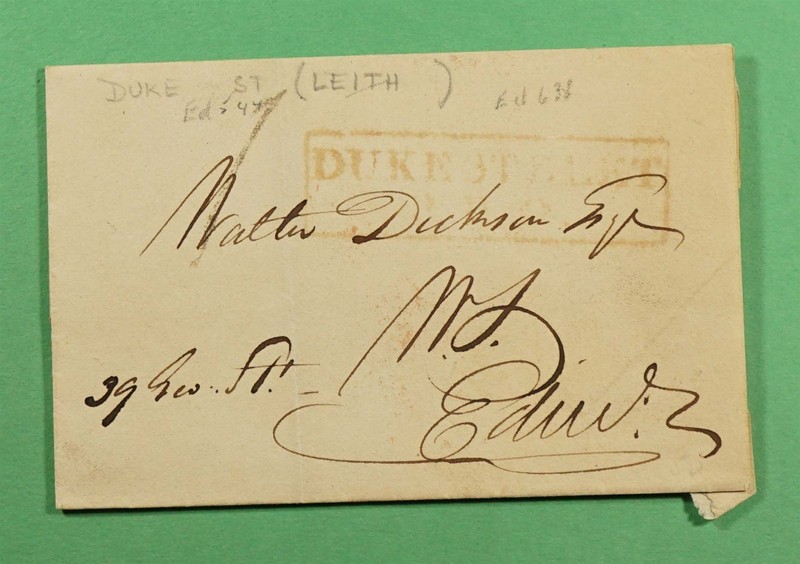 DUKE ST (LEITH)
DUKE STREET
Walter Dickson Esqr
W.S.
39 Geo. St.
Edinr.